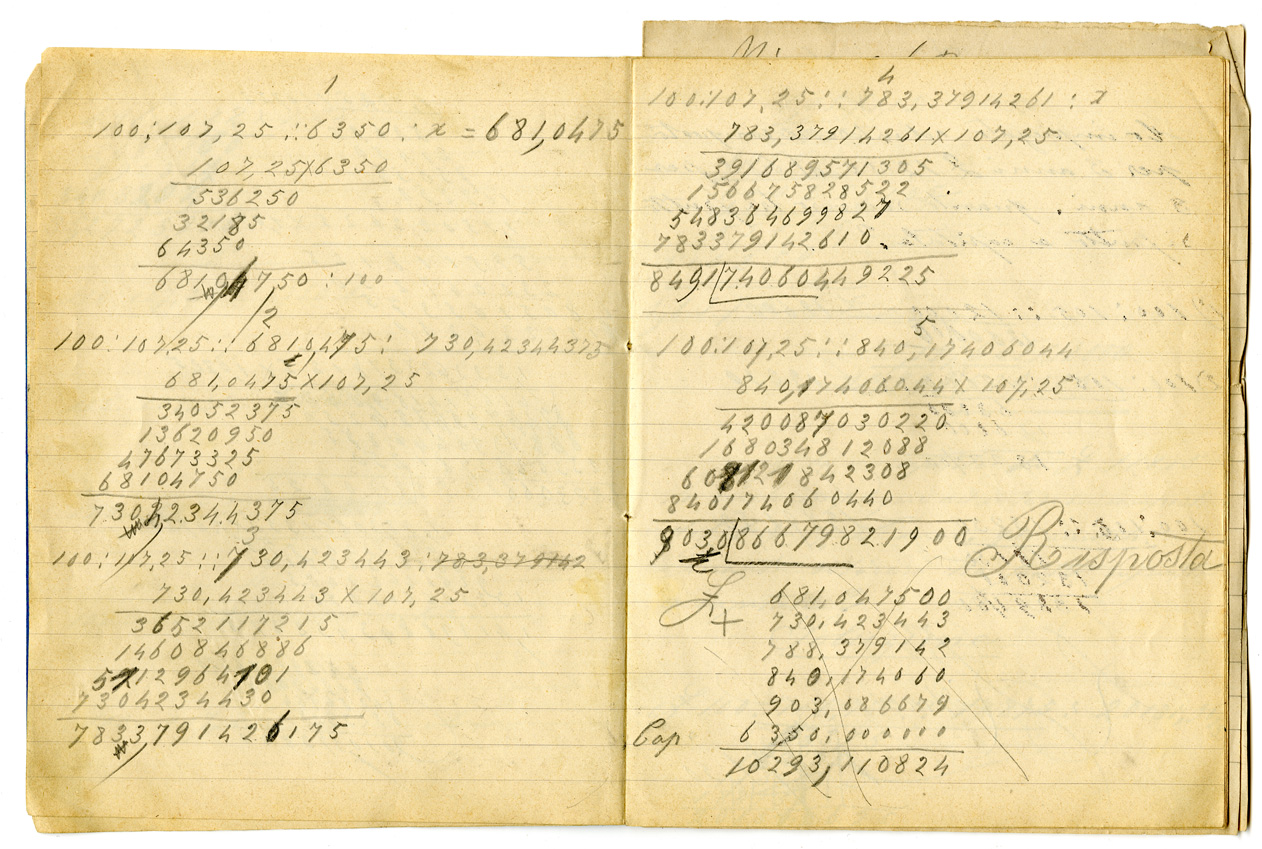 1
100:107,25::6350: x = 681,0475
107,25x6350
536250
32175
64350
68104750 : 100
2
100:107,25:: 681,0475: 730,42344375
681,0475x107,25
34052375
13620950
47673325
68104750
730,42344375
3
100:17,25::730,423443:783,379142
730,423443 x 107,25
3652117215
1460846886
5112964101
7304234430
7833791426175
4
100:107,25::783,37914261 : x
783,37914261x107,25
391689571305
156675828522
548364699827
783379142610
8491740604​49225
5
100:107,25::840,17406044
840,17406044x107,25
420087030220
168034812088
608121842308
840174060440
903086679821900
Risposta
681,047500
730,423443
788,379142
840,174060
903,086679
Cap 6350,000000
10293,110824